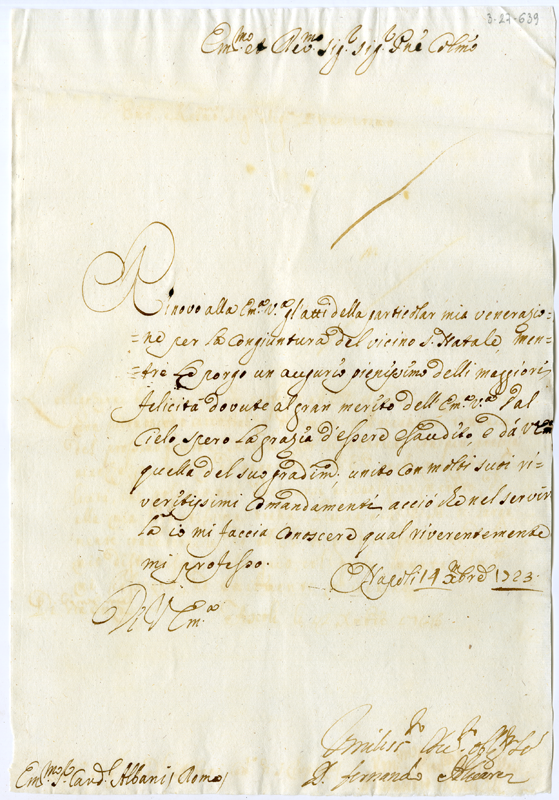 3-27-639
Em.mo et Rev.mo Sig.r Sig.r Pne Colmo
Rinovo alla Em.a V.a gl'atti della particolar mia venerazio=
=ne per la congiuntura del vicino S. Natale, men=
=tre Le porgo un augurio pienissimo delli maggiori
felicità dovute al gran merito dell'Em.a V.a Dal
Cielo spero la grazia d'essere esaudito, e da V. Em.a
quella del suo gradim.to unito con molti suoi ri=
veritissimi comandamenti, acciò che nel servir
la io mi faccia conoscere qual riverentemente
mi professo. Napoli 14 Xbre 1723.
Di V. Em.a
Em.mo S.r Card.l Albani / Roma /
D. Fernando Alvarez